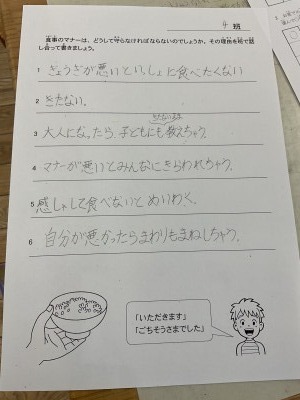 4 班
食事のマナーは、どうして守らなければならないのでしょうか。その理由を班で話
し合って書きましょう。
1 ぎょうぎが悪いといっしょに食べたくない
2 きたない。
きたない食べ方
3 大人になったら子どもにも教えちゃう。
4 マナーが悪いとみんなにきらわれちゃう。
5 感しゃして食べないとめいわく。
6 自分が悪かったらまわりもまねしちゃう。
「いただきます」
「ごちそうさまでした」